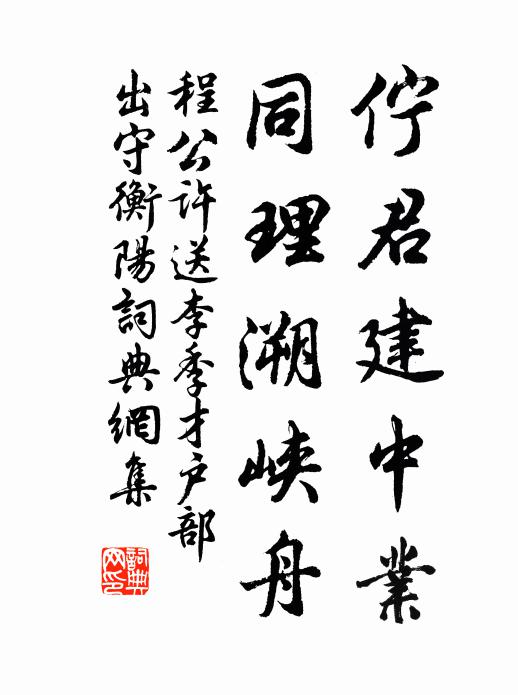 佇君建中業
同理溯峡舟
程公許送李季才户部
出守衡陽詞典網集
詞典
网印